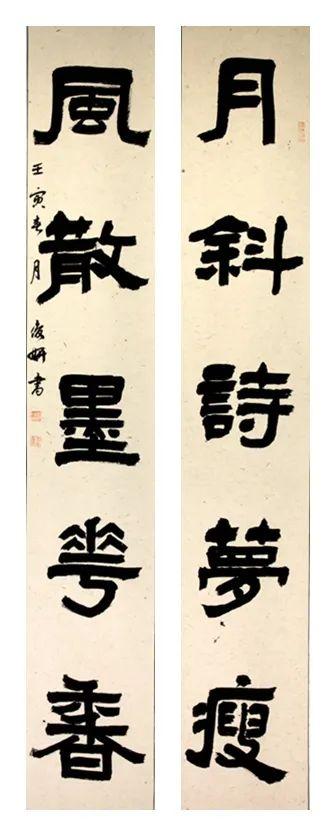 月斜詩夢瘦
風散墨華香
壬寅春月 俊妍書